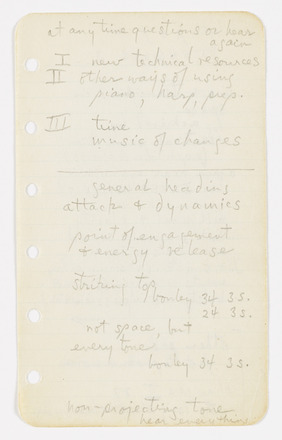 at any time questions or hear
again
I new technical resources
II other ways of using
piano, harp, prep.
III time
music of changes
general heading
attack & dynamics
point of engagement
& energy release
striking top
bonley 34 3 s.
24 3 s.
not space, but
every tone
bonley 34 3 s.
non-projecting tone
hear everything